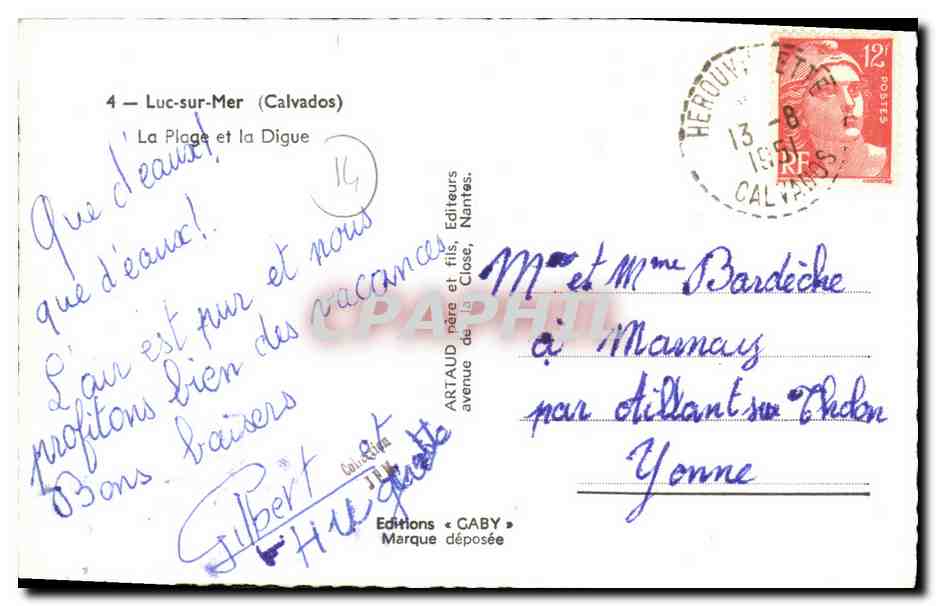 4 — Luc-sur-Mer (Calvados)
La Plage et la Digue
14
Que d'eaux!
que d'eaux!.
L'air est pur et nous
profitons bien des vaccances
Bons baisers
Gilbert et
Huguette
Collection
ARTAUD père et fils, Editeurs
avenue de la Close, Nantes.
Editions « GABY »
Marque déposée
12F
POSTES
RF
HEROUVILLETTE
13 -8
1951
CALVADOS
Mr et Mme Bardèche
à Marnay
par Aillant sur Tholon
Yonne
CPAPHIL